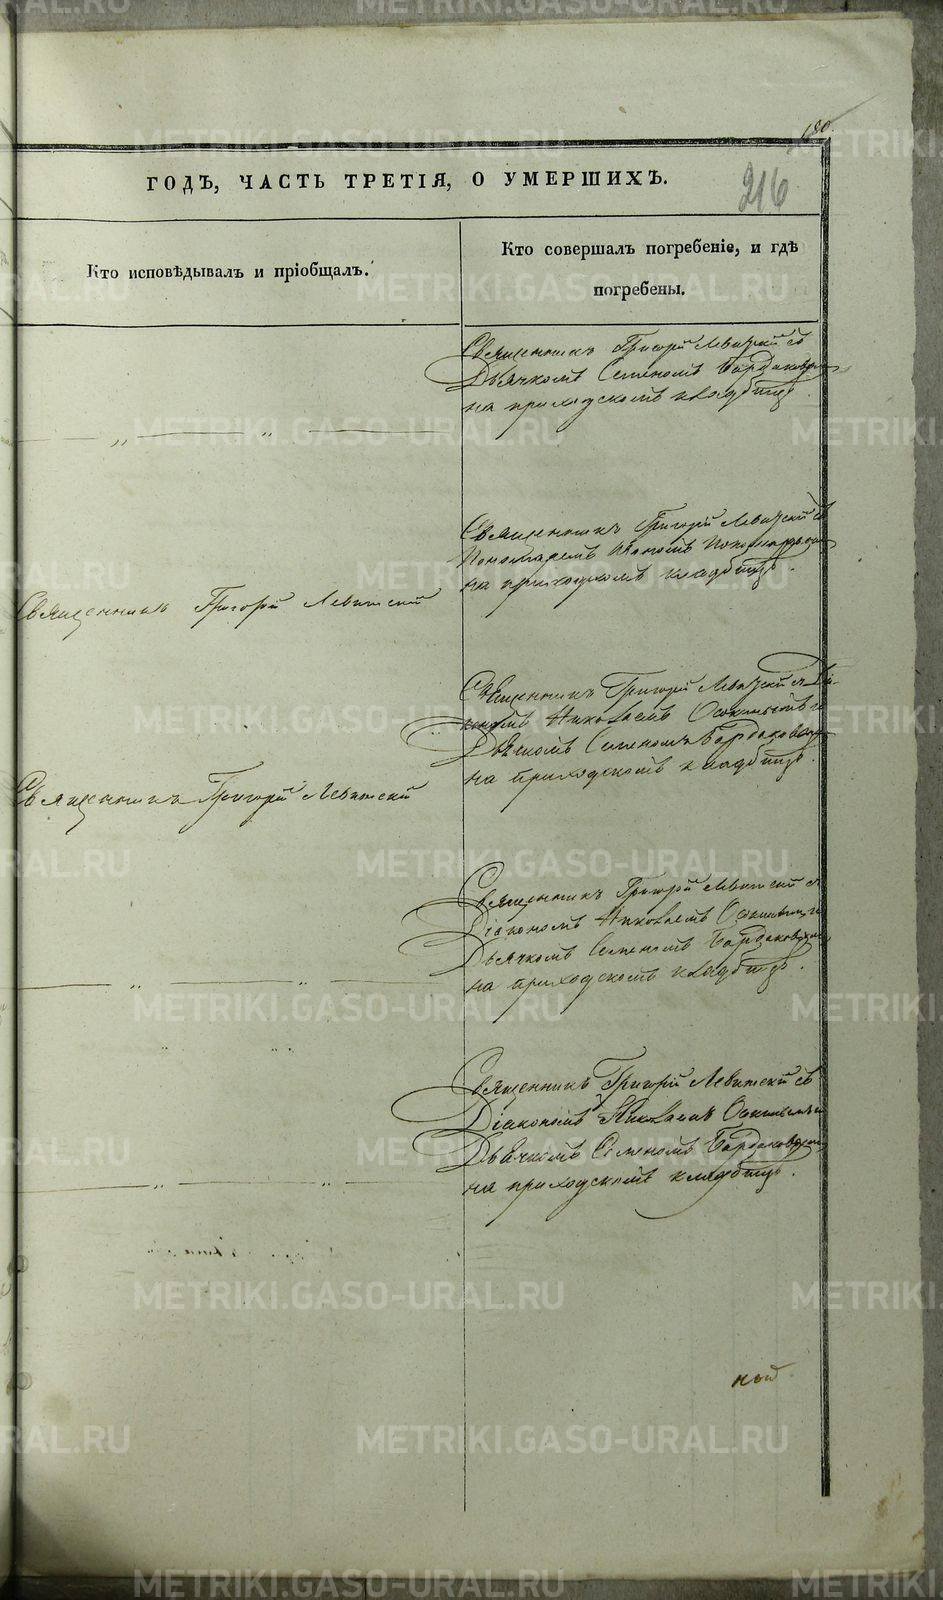 180.
ГОДЪ, ЧАСТЬ ТРЕТІЯ, О УМЕРШИХЪ.
216
Кто исповѣдывалъ и пріобщалъ.
Кто совершалъ погребеніе, и гдѣ
погребены.
Священникъ Григорій Левитскій съ
Дьячкомъ Семеномъ Бардаковымъ
на приходскомъ кладбищѣ.
— „ — „ —
Священникъ Григорій Левитскій съ
Пономаремъ
на приходскомъ кладбищѣ.
Священникъ Григорій Левитскій
Священникъ Григорій Левитскій съ Діа-
кономъ Николаемъ и
Дьячкомъ Семеномъ Бардаковымъ
на приходскомъ кладбищѣ.
Священникъ Григорій Левитскій
Священникъ Григорій Левитскій съ
Діакономъ Николаемъ и
Дьячкомъ Семеномъ Бардаковымъ
на приходскомъ кладбищѣ.
— „ — „ —
Священникъ Григорій Левитскій съ
Діакономъ Николаемъ и
Дьячкомъ Семеномъ Бардаковымъ
на приходскомъ кладбищѣ.
— „ — „ —
ной
METRIKI.GASO-URAL.RU